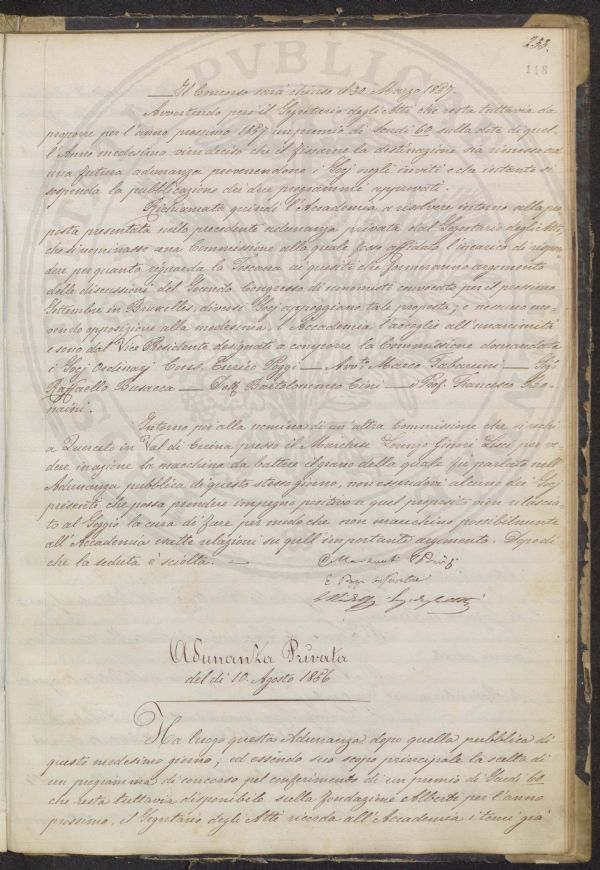 233.
118
Il Concorso sarà chiuso il 30 Marzo 1857.
Avvertendo però il Segretario degli Atti che resta tuttavia da
proporre per l'anno prossimo 1857 un premio di Scudi 60 sulla data di quel-
l'Anno medesimo vien deciso che il fissarne la destinazione sia rimesso ad
una futura adunanza prevenendone i Socj negli inviti e che intanto si
sospenda la pubblicazione dei due programmi approvati.
Richiamata quindi l'Accademia a risolvere intorno alla pro-
posta presentata nella precedente adunanza privata dal Segretario degli Atti,
che si nominasse una Commissione alla quale fosse affidato l'incarico di rispon-
dere per quanto riguarda la Toscana ai quesiti che formeranno argomento
delle discussioni del Secondo Congresso di economisti convocato pel prossimo
Settembre in Bruxelles, diversi Socj appoggiano tale proposta; e nessuno mo-
vendo opposizione alla medesima, l'Accademia l'accoglie all'unanimità
e sono dal Vice Presidente designati a comporre la Commissione domandata
i Socj Ordinarj Cons. Enrico Poggi — Avv.to Marco Tabarrini —
Raffaello Busacca — Dott. Bartolommeo Cini — e Prof. Francesco Bo-
naini.
Intorno poi alla nomina di un'altra Commissione che si rechi
a Querceto in Val di Cecina presso il Marchese Lorenzo Ginori Lisci per ve-
dere in azione la macchina da battere il grano della quale fu parlato nell'
Adunanza pubblica di questo stesso giorno, non essendovi alcuno dei Socj
presenti, che possa prendere impegno positivo a quel proposito vien rilascia-
to al Seggio la cura di fare per modo che non manchino possibilmente
all'Accademia esatte relazioni su quell'importante argomento. Dopo di
che la seduta è sciolta. —
Adunanza Privata
del dì 10. Agosto 1856
Ha luogo questa Adunanza dopo quella pubblica di
questo medesimo giorno; ed essendo suo scopo principale la scelta di
un programma di concorso pel conferimento di un premio di Scudi 60
che resta tuttavia disponibile sulla fondazione Alberti per l'anno
prossimo, il Segretario degli Atti ricorda all'Accademia i temi già